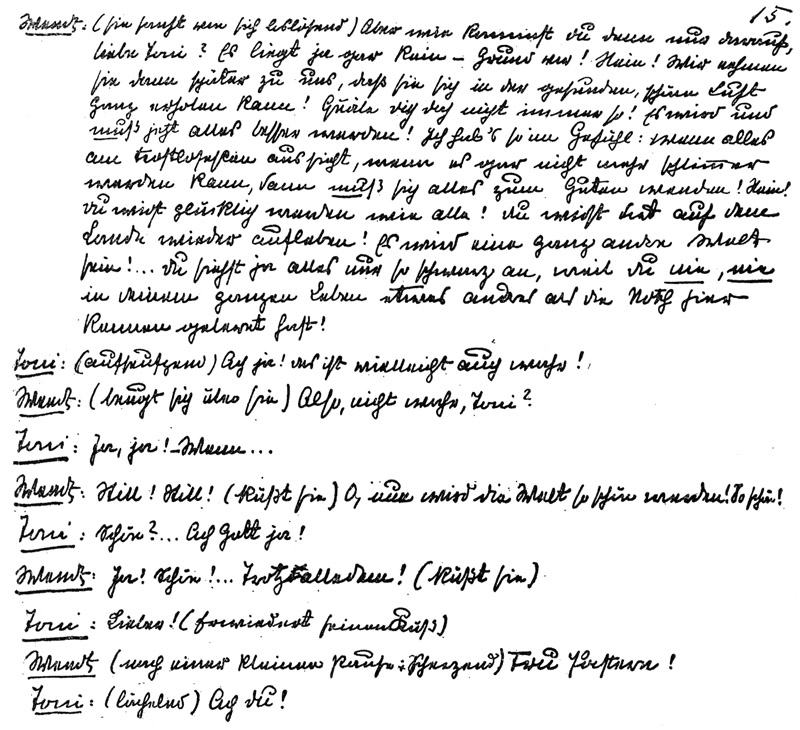 15.
Wendt: (sie sanft von sich loslösend) Aber wie kommst du denn nur darauf,
liebe Toni? Es liegt ja gar kein – Grund vor! Nein! Wir nehmen
sie dann später zu uns, daß sie sich in der gesunden, schönen Luft
ganz erholen kann! Quäle dich doch nicht immer so! Es wird und
muß jetzt alles besser werden! Ich hab's so im Gefühl: wenn alles
am trostlosesten aussieht, wenn es gar nicht mehr schlimmer
werden kann, dann muß sich alles zum Guten wenden! Nein!
du wirst glücklich werden wir alle! du wirst dort auf dem
Lande wieder aufleben! Es wird eine ganz andre Welt
sein!... du siehst ja alles nur so schwarz an, weil du nie, nie
in deinem ganzen Leben etwas andres als die Noth hier
kennen gelernt hast!
Toni: (aufseufzend) Ach ja! das ist vielleicht auch wahr!
Wendt: (beugt sich über sie) Also, nicht wahr, Toni?
Toni: Ja, ja! – Wenn...
Wendt: Still! Still! (Küßt sie) O, nun wird die Welt so schön werden! So schön!
Toni: Schön?... Ach Gott ja!
Wendt: Ja! Schön!... Trotzalledem! (Küßt sie)
Toni: Lieber! (Erwiedert seinen Kuß)
Wendt (nach einer kleinen Pause: Scherzend) Frau Pastern!
Toni: (lächelnd) Ach du!